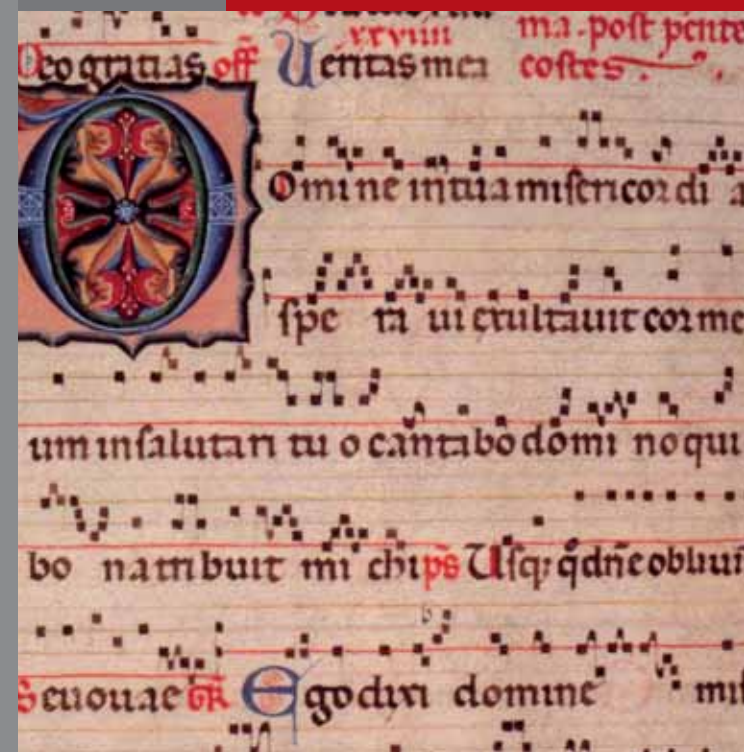 xxviiii ma. poſt pente
Deo gratias off̃ Ueritas mea coſtes .
DOmine in tua miſericordi a
ſpe ra ui exultauit cor me
um in ſalutari tu o cantabo domi no qui
bo na tribuit mi chi p̃s Uſq; qͦ dñe obliui
Seuouae gr̃ Ego dixi domine miſ